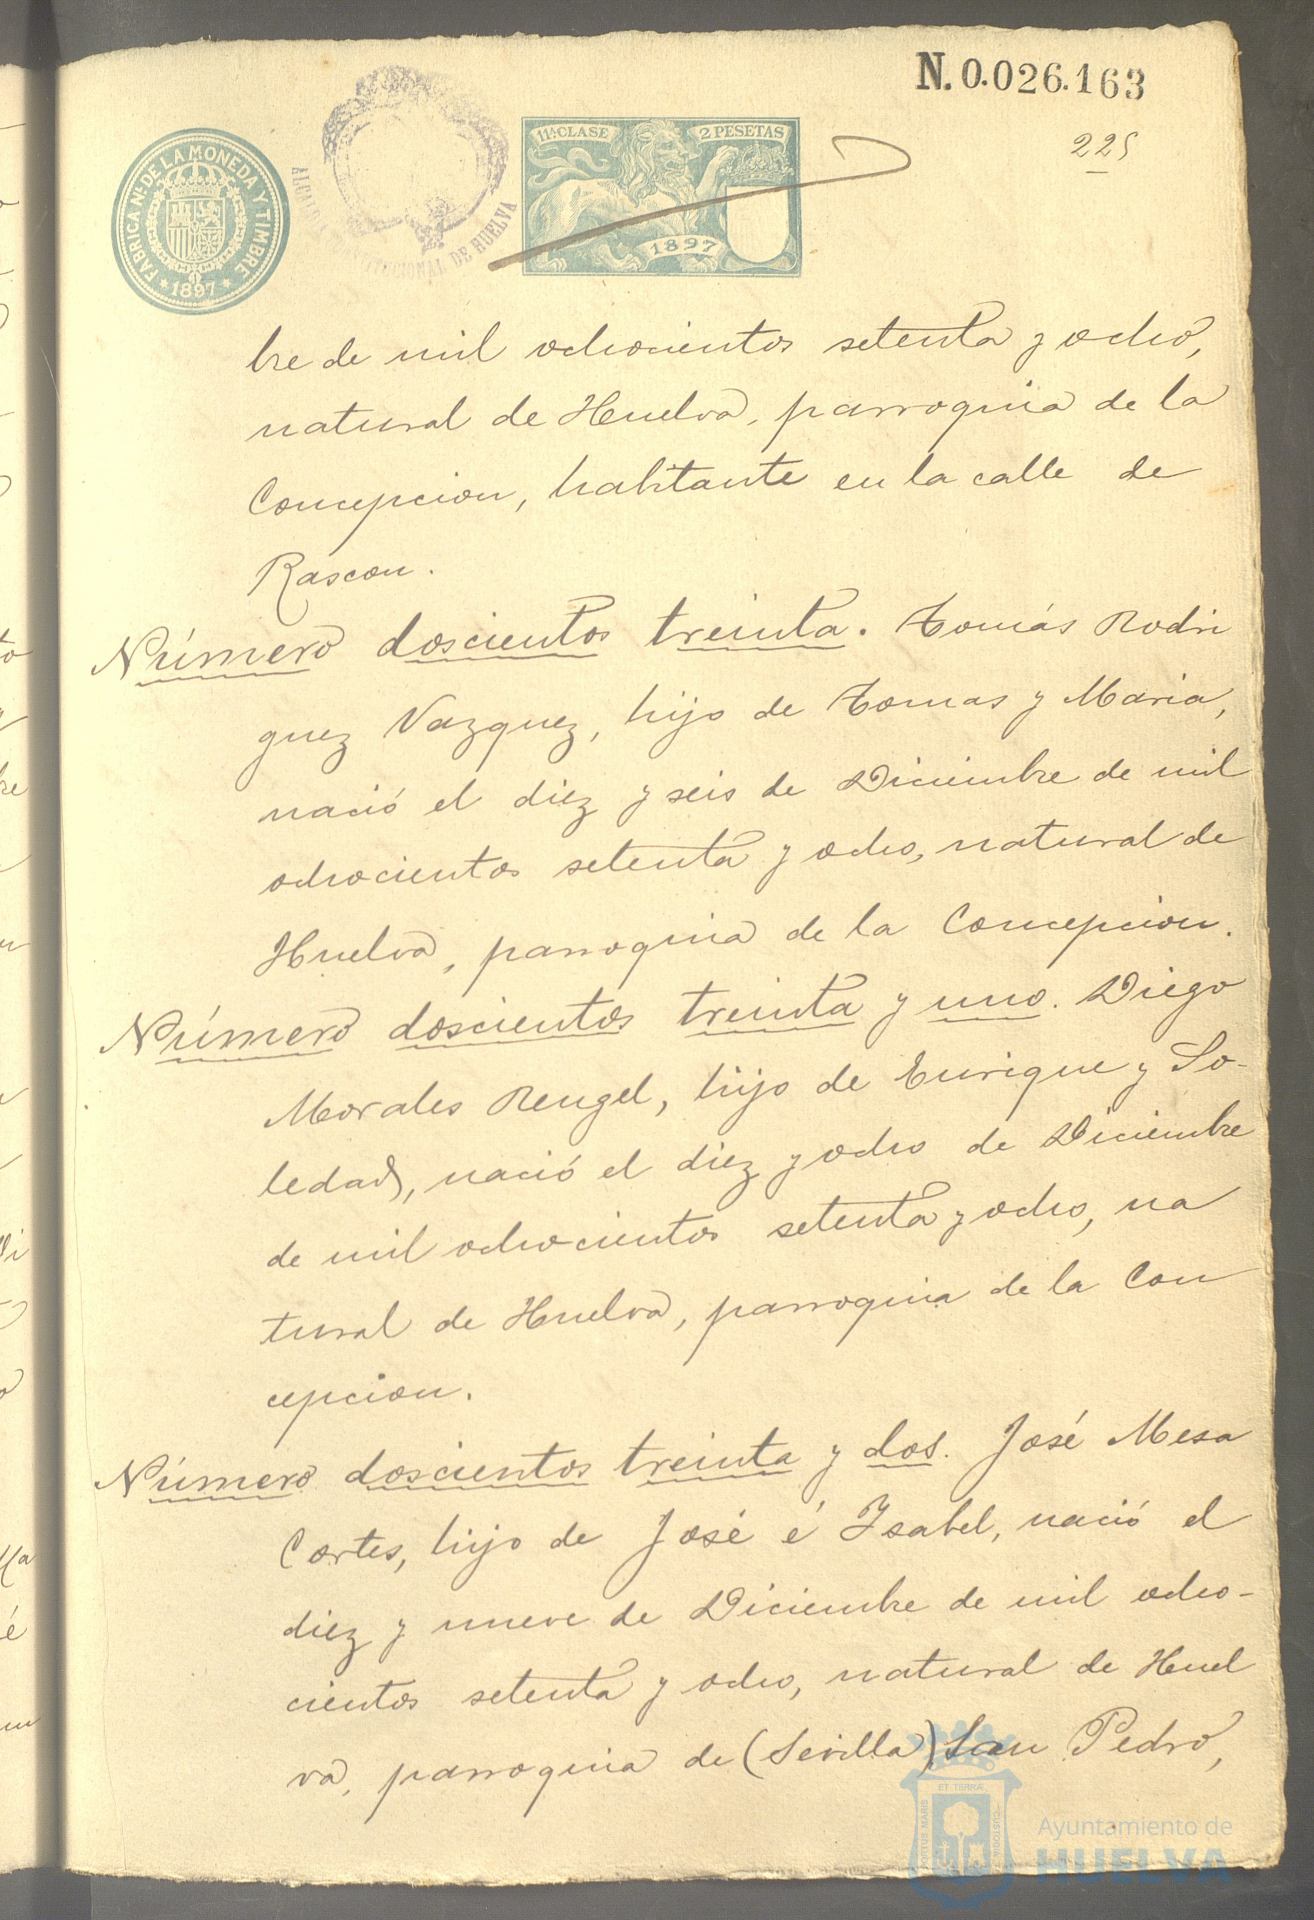 N. 0.026.163
225
FABRICA Nal. DE LA MONEDA Y TIMBRE
* 1897 *
ALCALDIA CONSTITUCIONAL DE HUELVA
11ª CLASE 2 PESETAS
1897
bre de mil ochocientos setenta y ocho,
natural de Huelva, parroquia de la
Concepcion, habitante en la calle de
Rascon.
Número doscientos treinta. Tomás Rodri
guez Vazquez, hijo de Tomas y Maria,
nació el diez y seis de Diciembre de mil
ochocientos setenta y ocho, natural de
Huelva, parroquia de la Concepcion.
Número doscientos treinta y uno. Diego
Morales Rengel, hijo de Enrique y So-
ledad, nació el diez y ocho de Diciembre
de mil ochocientos setenta y ocho, na
tural de Huelva, parroquia de la Con
cepcion.
Número doscientos treinta y dos. José Mesa
Cortes, hijo de José é Ysabel, nació el
diez y nueve de Diciembre de mil ocho-
cientos setenta y ocho, natural de Huel
va, parroquia de (Sevilla) San Pedro,
ET TERRÆ
PORTUS MARIS
CUSTODIA
Ayuntamiento de
HUELVA